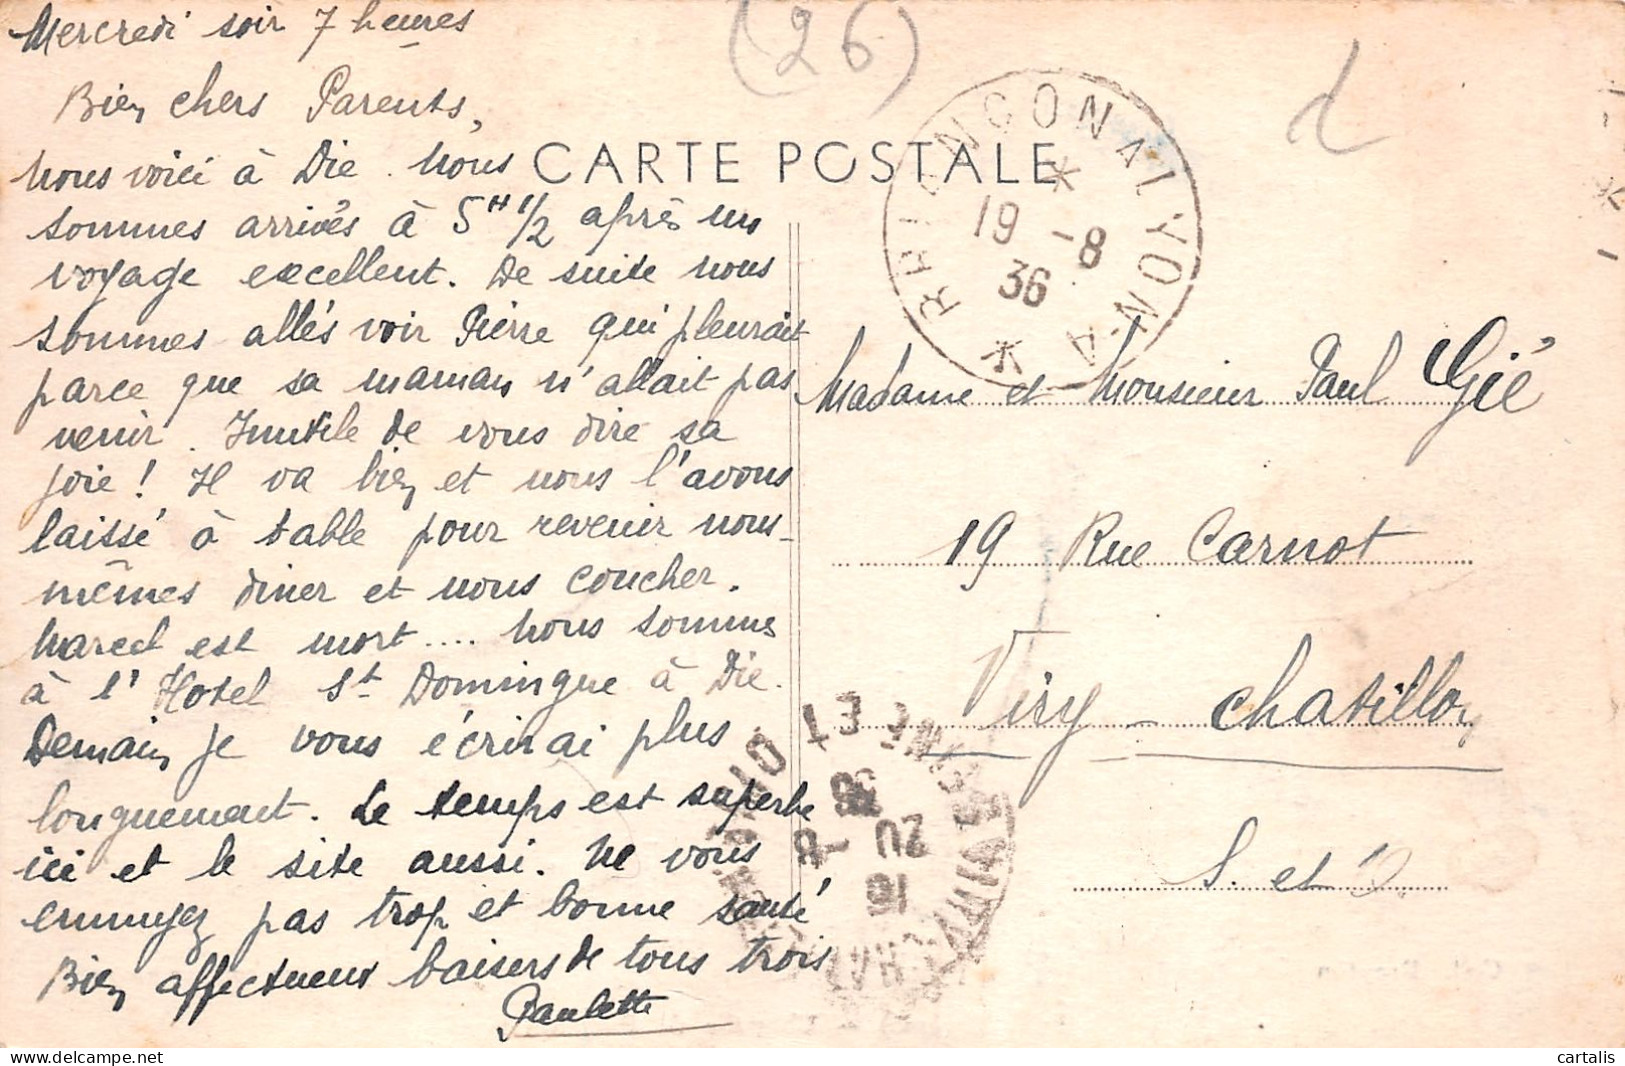 Mercredi soir 7 heures
(26)
Bien chers Parents,
CARTE POSTALE
nous voici à Die. nous
sommes arrivés à 5H 1/2 après un
voyage excellent. De suite nous
sommes allés voir Pierre qui pleurait
parce que sa maman n'allait pas
venir. Inutile de vous dire sa
joie ! Il va bien et nous l'avons
laissé à table pour revenir nous-
mêmes diner et nous coucher.
Marcel est mort.... nous sommes
à l'Hotel St Domingue à Die.
Demain je vous écrirai plus
longuement. Le temps est superbe
ici et le site aussi. Ne vous
ennuyez pas trop et bonne santé
Bien affectueux baisers de tous trois
Paulette
BRIANÇON A LYON
19 -8
36
Madame et Monsieur Paul Gié
19 Rue Carnot
Viry-chatillon
S. et O.
VIRY-CHATILLON
SEINE ET OISE
16
20 -8
36
cartalis